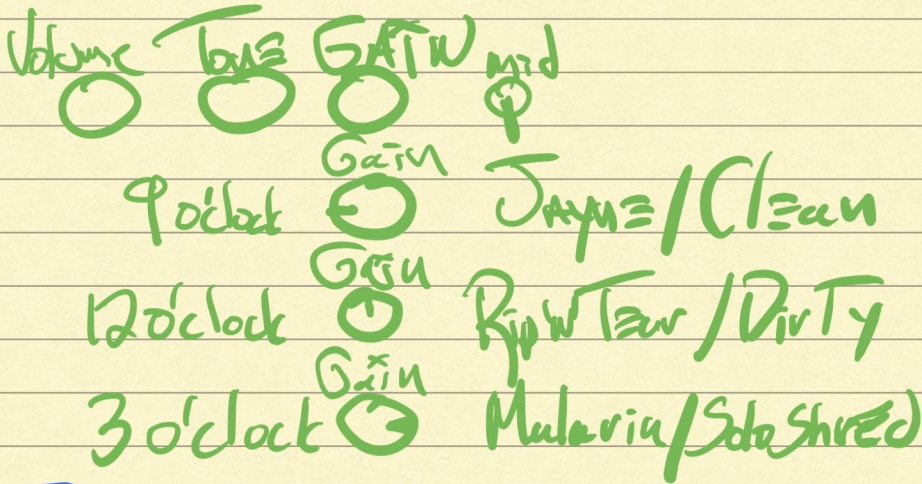 Volume Tone GAIN mid
Gain
9 o'clock Jayne/Clean
Gain
12 o'clock Rip N Tear/Dirty
Gain
3 o'clock Malaria/Solo Shred